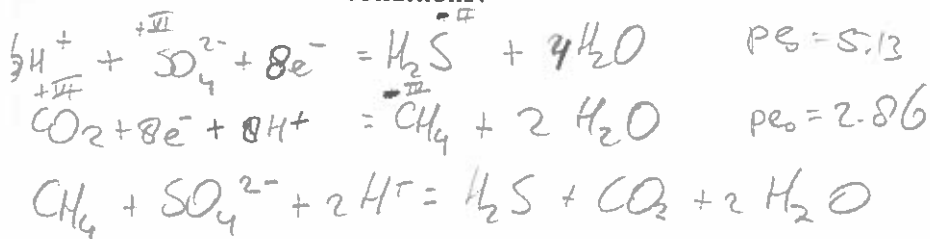 H⁺ + SO₄²⁻ + 8e⁻ = H₂S + 4H₂O pe₀ = 5.13
CO₂ + 8e⁻ + 8H⁺ = CH₄ + 2 H₂O pe₀ = 2.86
CH₄ + SO₄²⁻ + 2H⁺ = H₂S + CO₂ + 2 H₂O